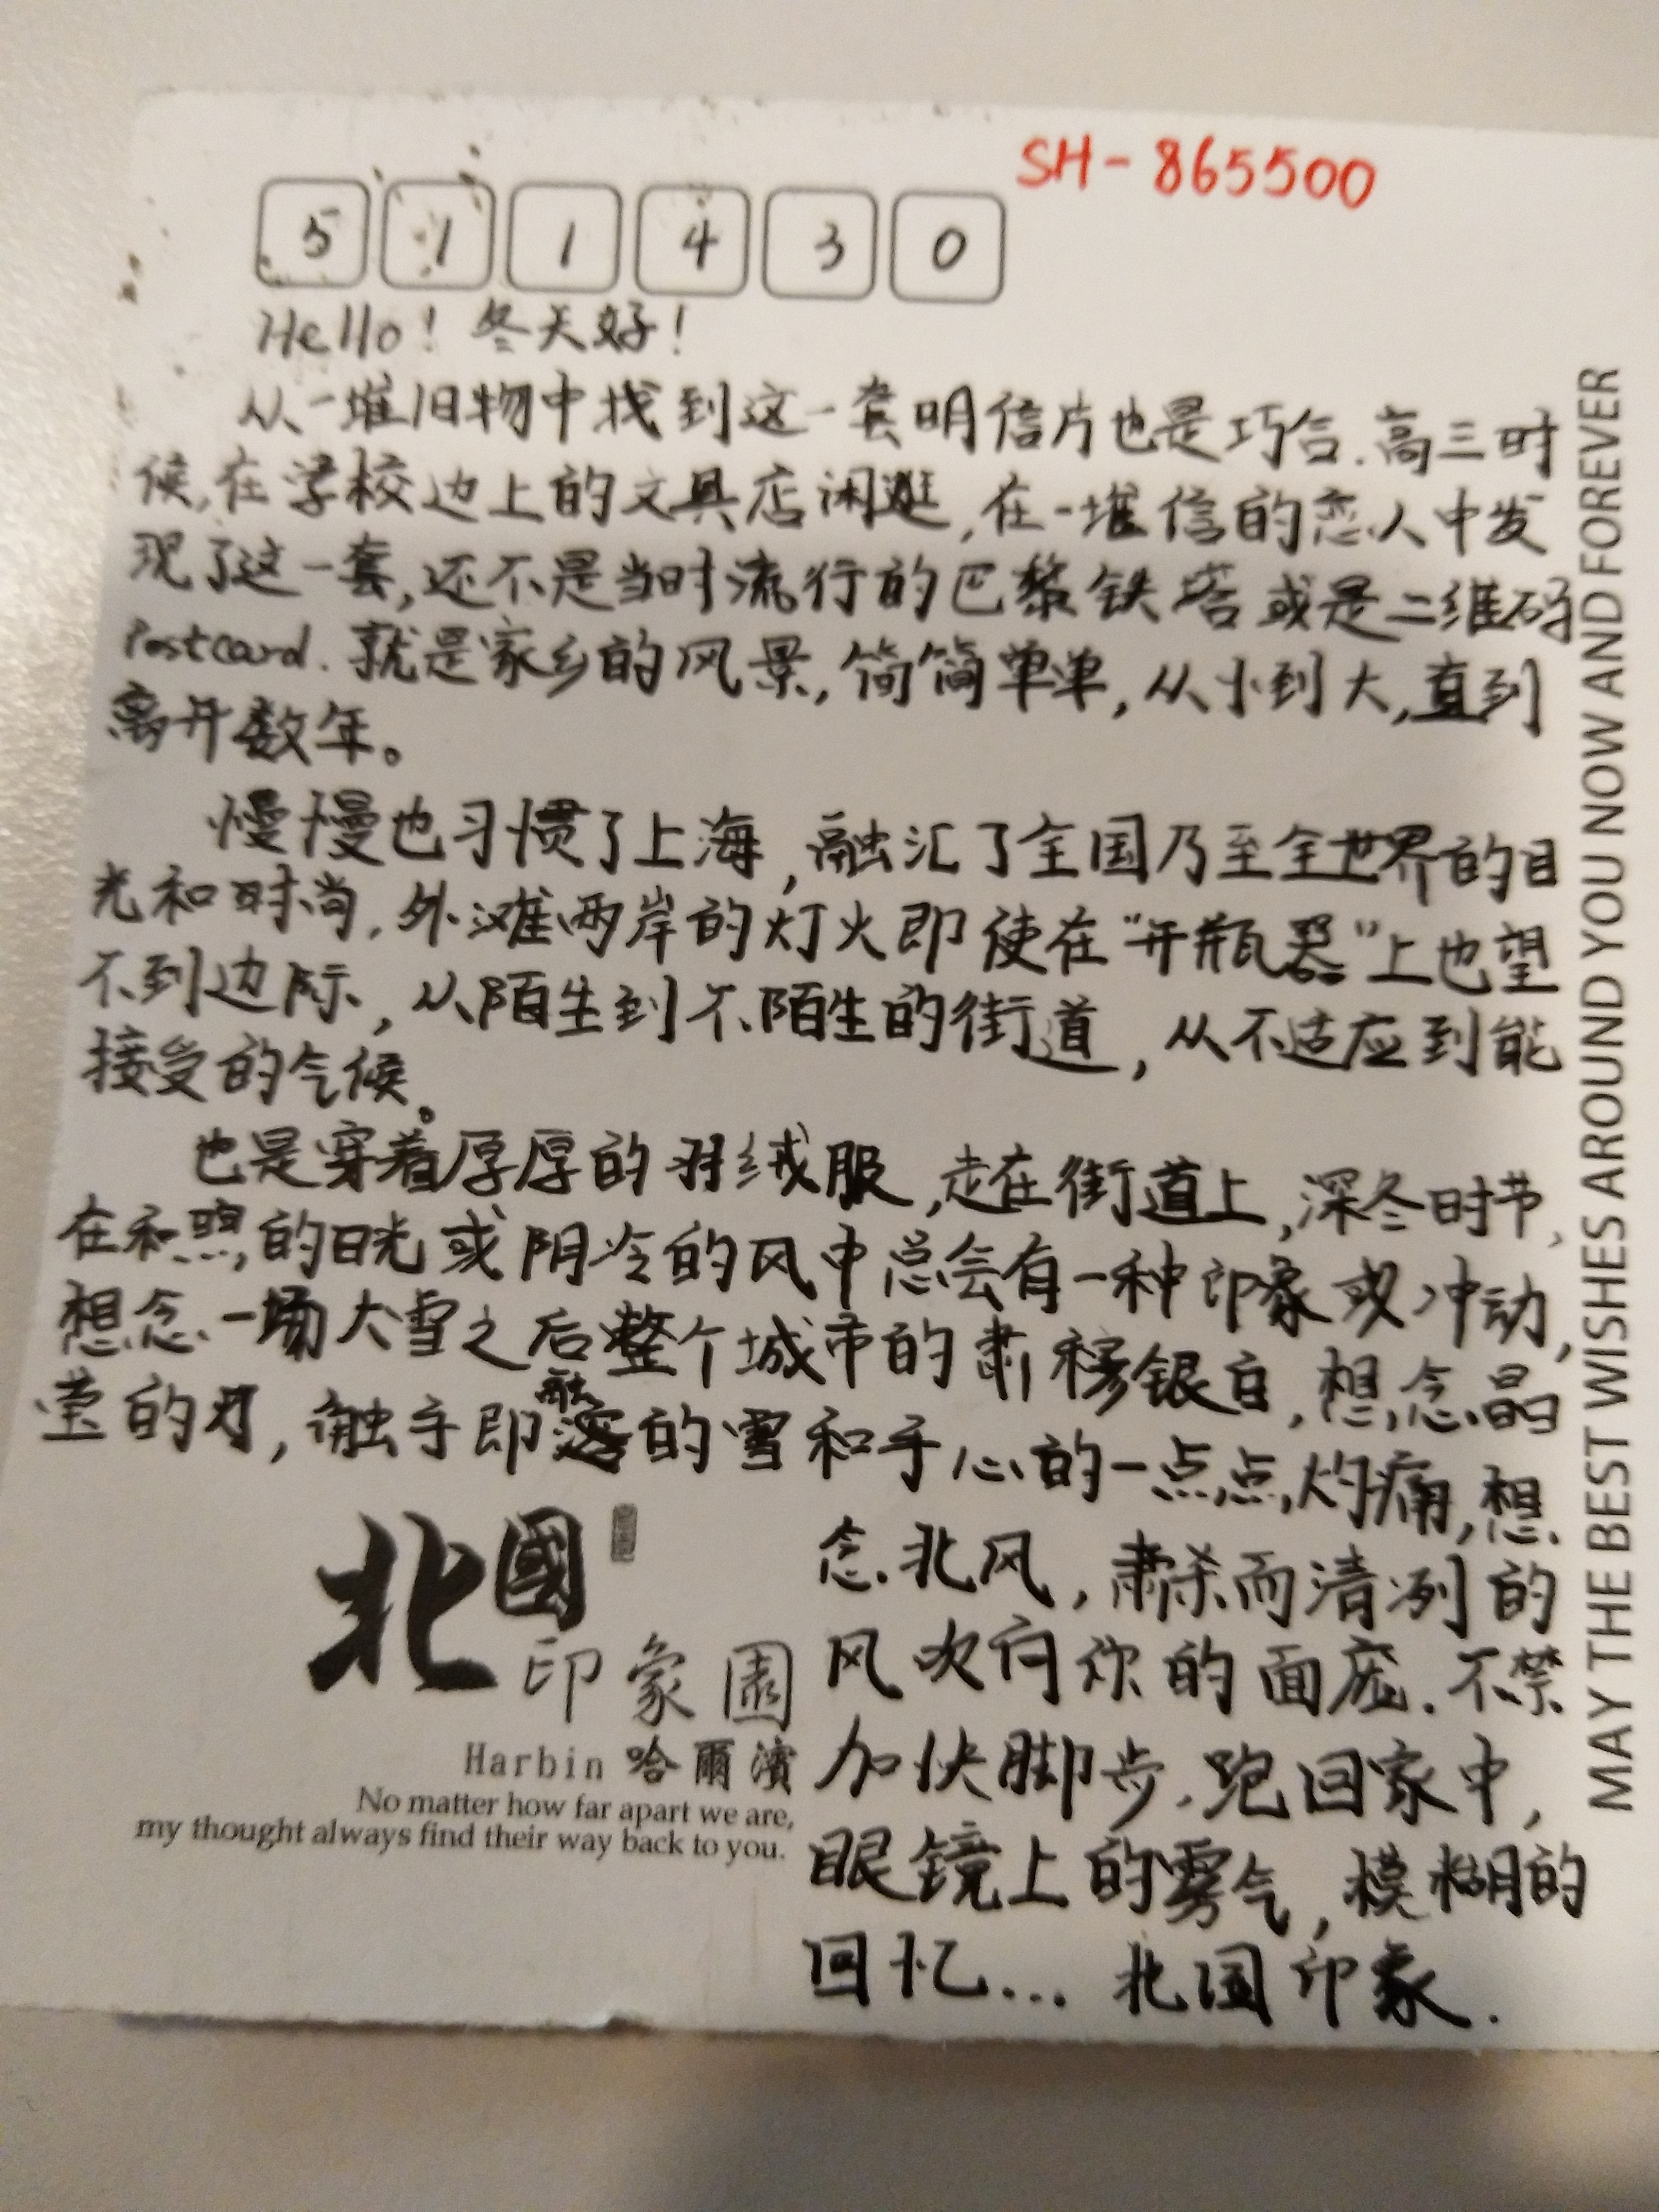 SH-865500
511430
Hello! 冬天好!
从一堆旧物中找到这一套明信片也是巧合.高三时
候,在学校边上的文具店闲逛,在一堆信的恋人中发
现了这一套,还不是当时流行的巴黎铁塔或是二维码
Postcard.就是家乡的风景,简简单单,从小到大,直到
离开数年。
慢慢也习惯了上海,融汇了全国乃至全世界的目
光和时尚,外滩两岸的灯火即使在“开瓶器”上也望
不到边际,从陌生到不陌生的街道,从不适应到能
接受的气候。
也是穿着厚厚的羽绒服,走在街道上,深冬时节,
在和煦的日光或阴冷的风中总会有一种印象或冲动,
想念一场大雪之后整个城市的肃穆银白,想念晶
莹的,触手即融的雪和手心的一点点灼痛,想
念北风,肃杀而清冽的
风吹向你的面庞.不禁
加快脚步.跑回家中,
眼镜上的雾气,模糊的
回忆... 北国印象.
北國
印象園
Harbin 哈爾濱
No matter how far apart we are,
my thought always find their way back to you.
MAY THE BEST WISHES AROUND YOU NOW AND FOREVER